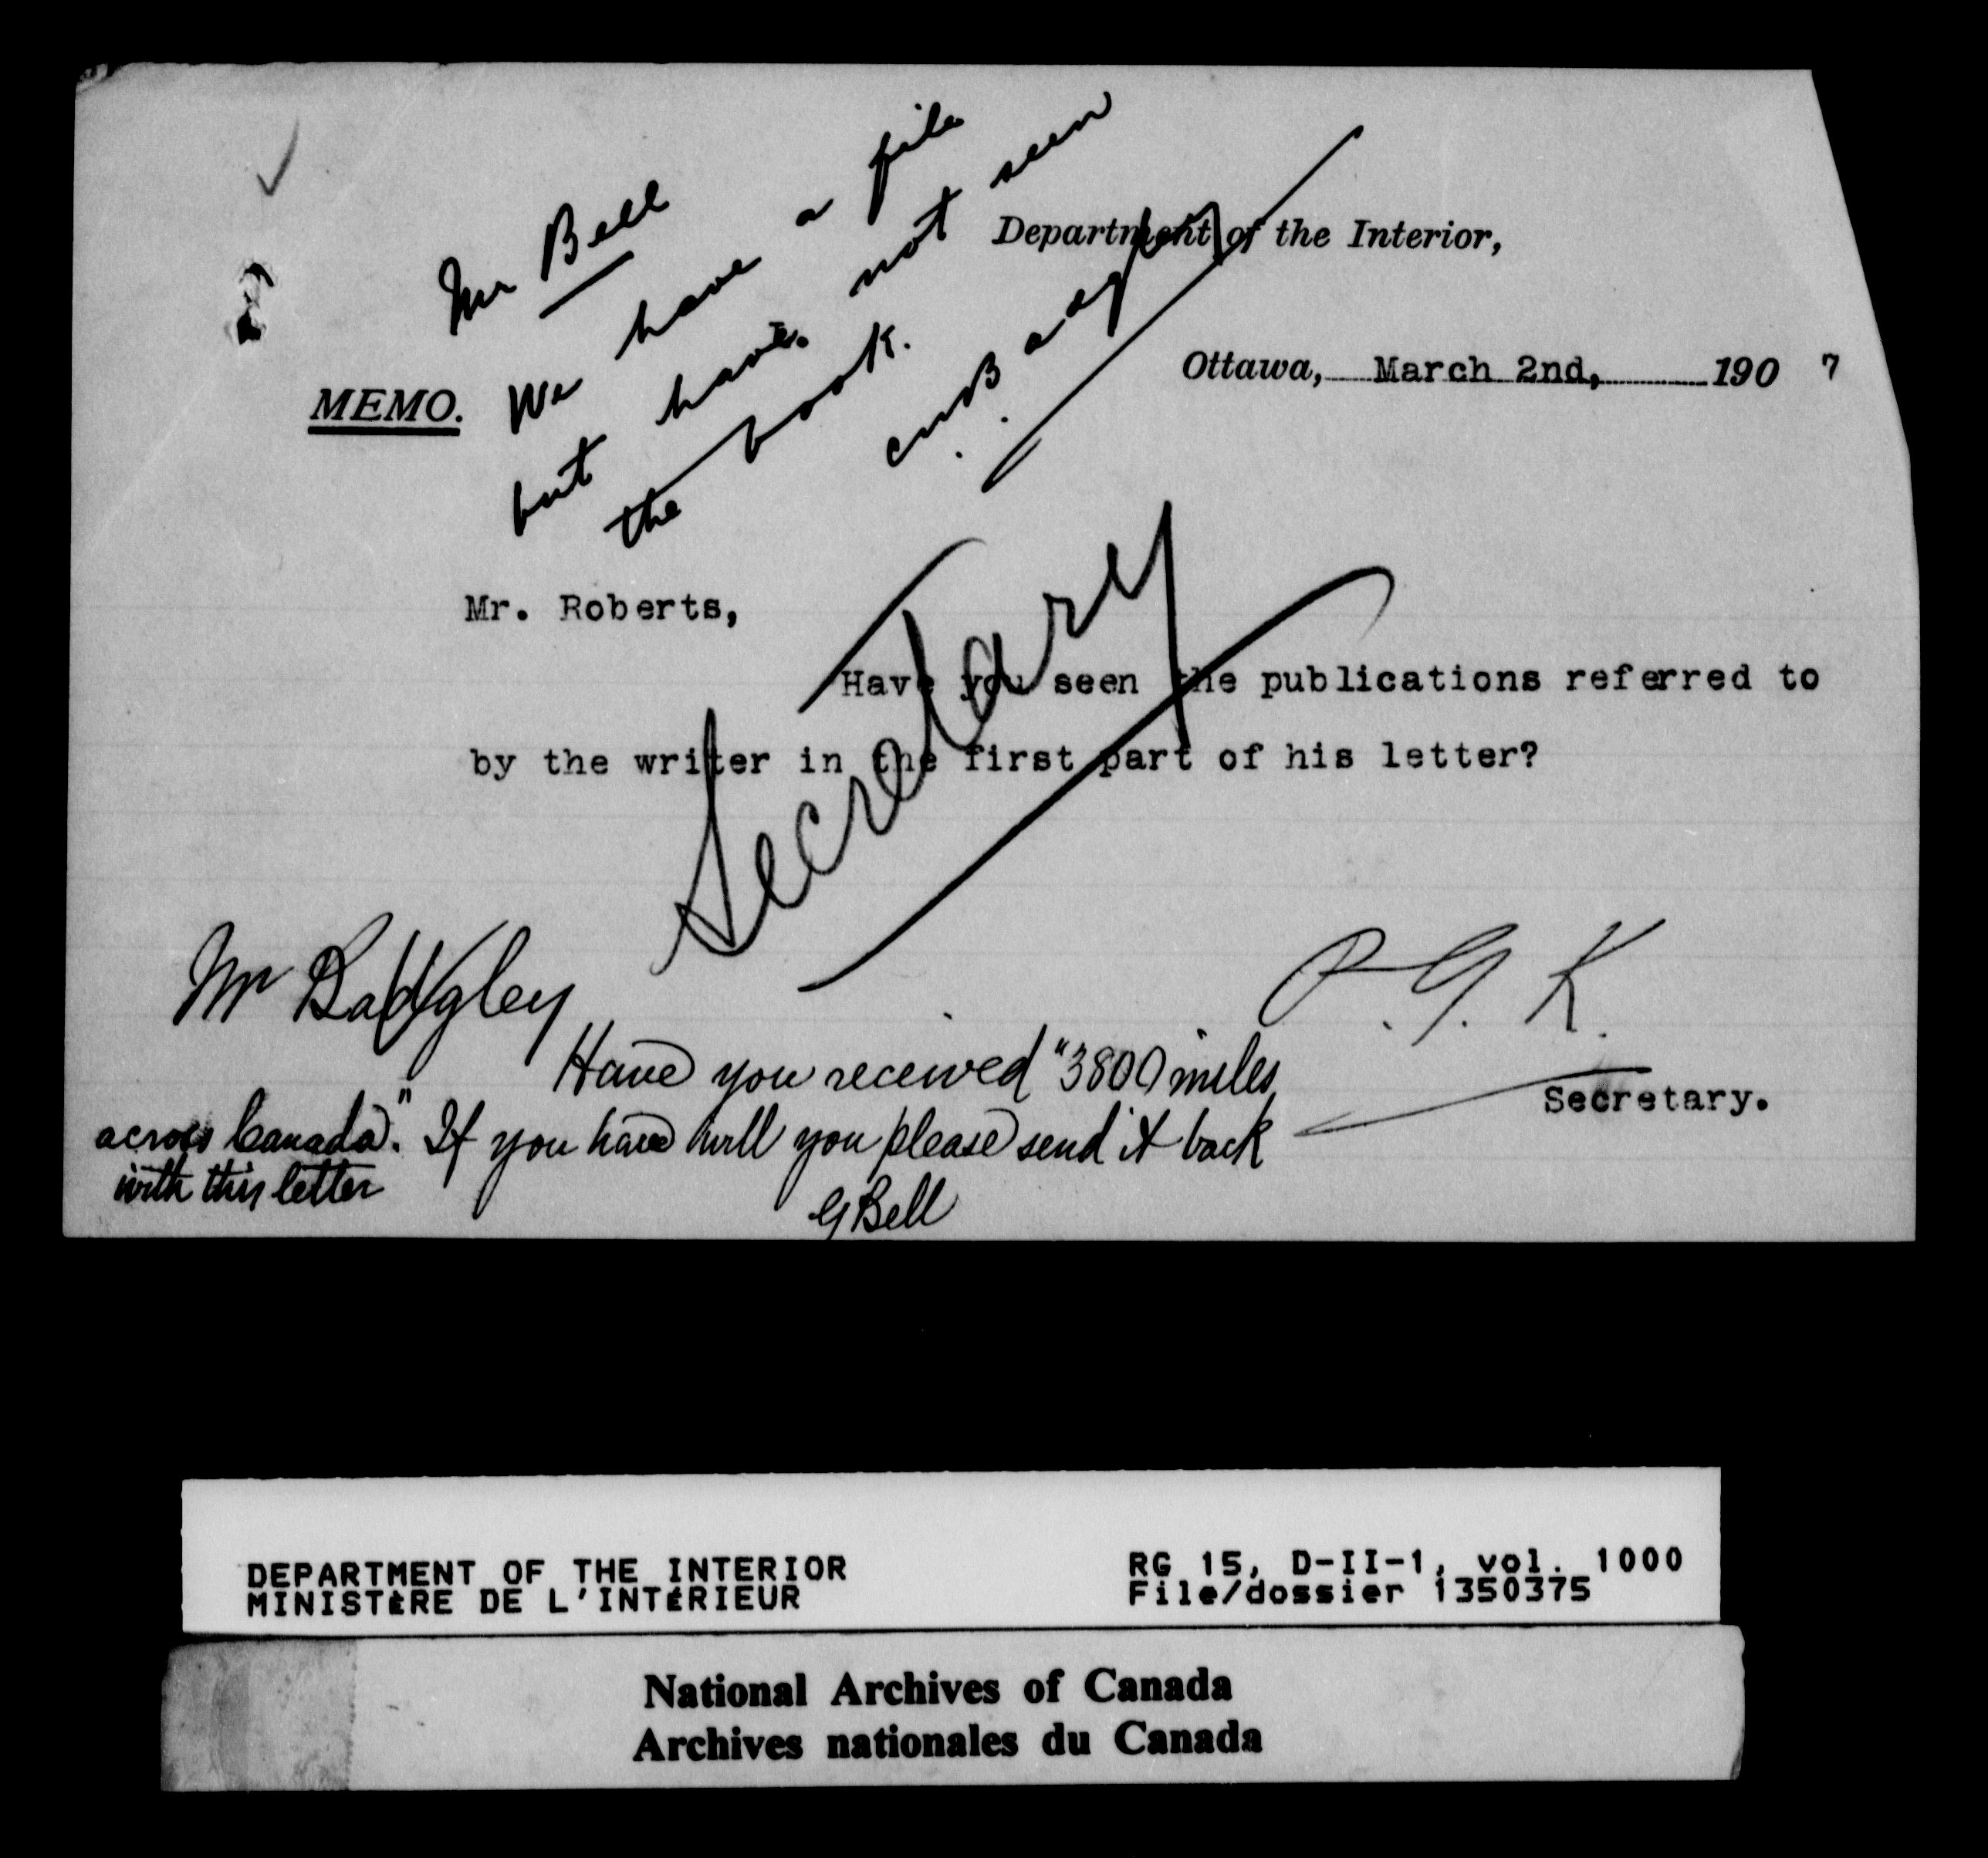 Mr Bell
We have a file
but have not seen
the book.
Department of the Interior,
Ottawa, March 2nd, 190 7
MEMO.
Mr. Roberts,
Have you seen the publications referred to
by the writer in the first part of his letter?
Secretary
P. G. K.
Secretary.
Mr Badgley
Have you received "3800 miles
across Canada". If you have will you please send it back
with this letter
G Bell
DEPARTMENT OF THE INTERIOR
MINISTÈRE DE L'INTÉRIEUR
RG 15, D-II-1, vol. 1000
File/dossier 1350375
National Archives of Canada
Archives nationales du Canada